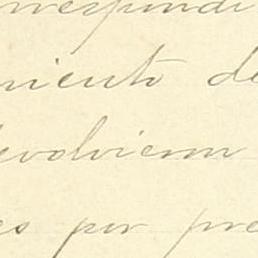 correspondi
miento de
devolvieron
es por pre